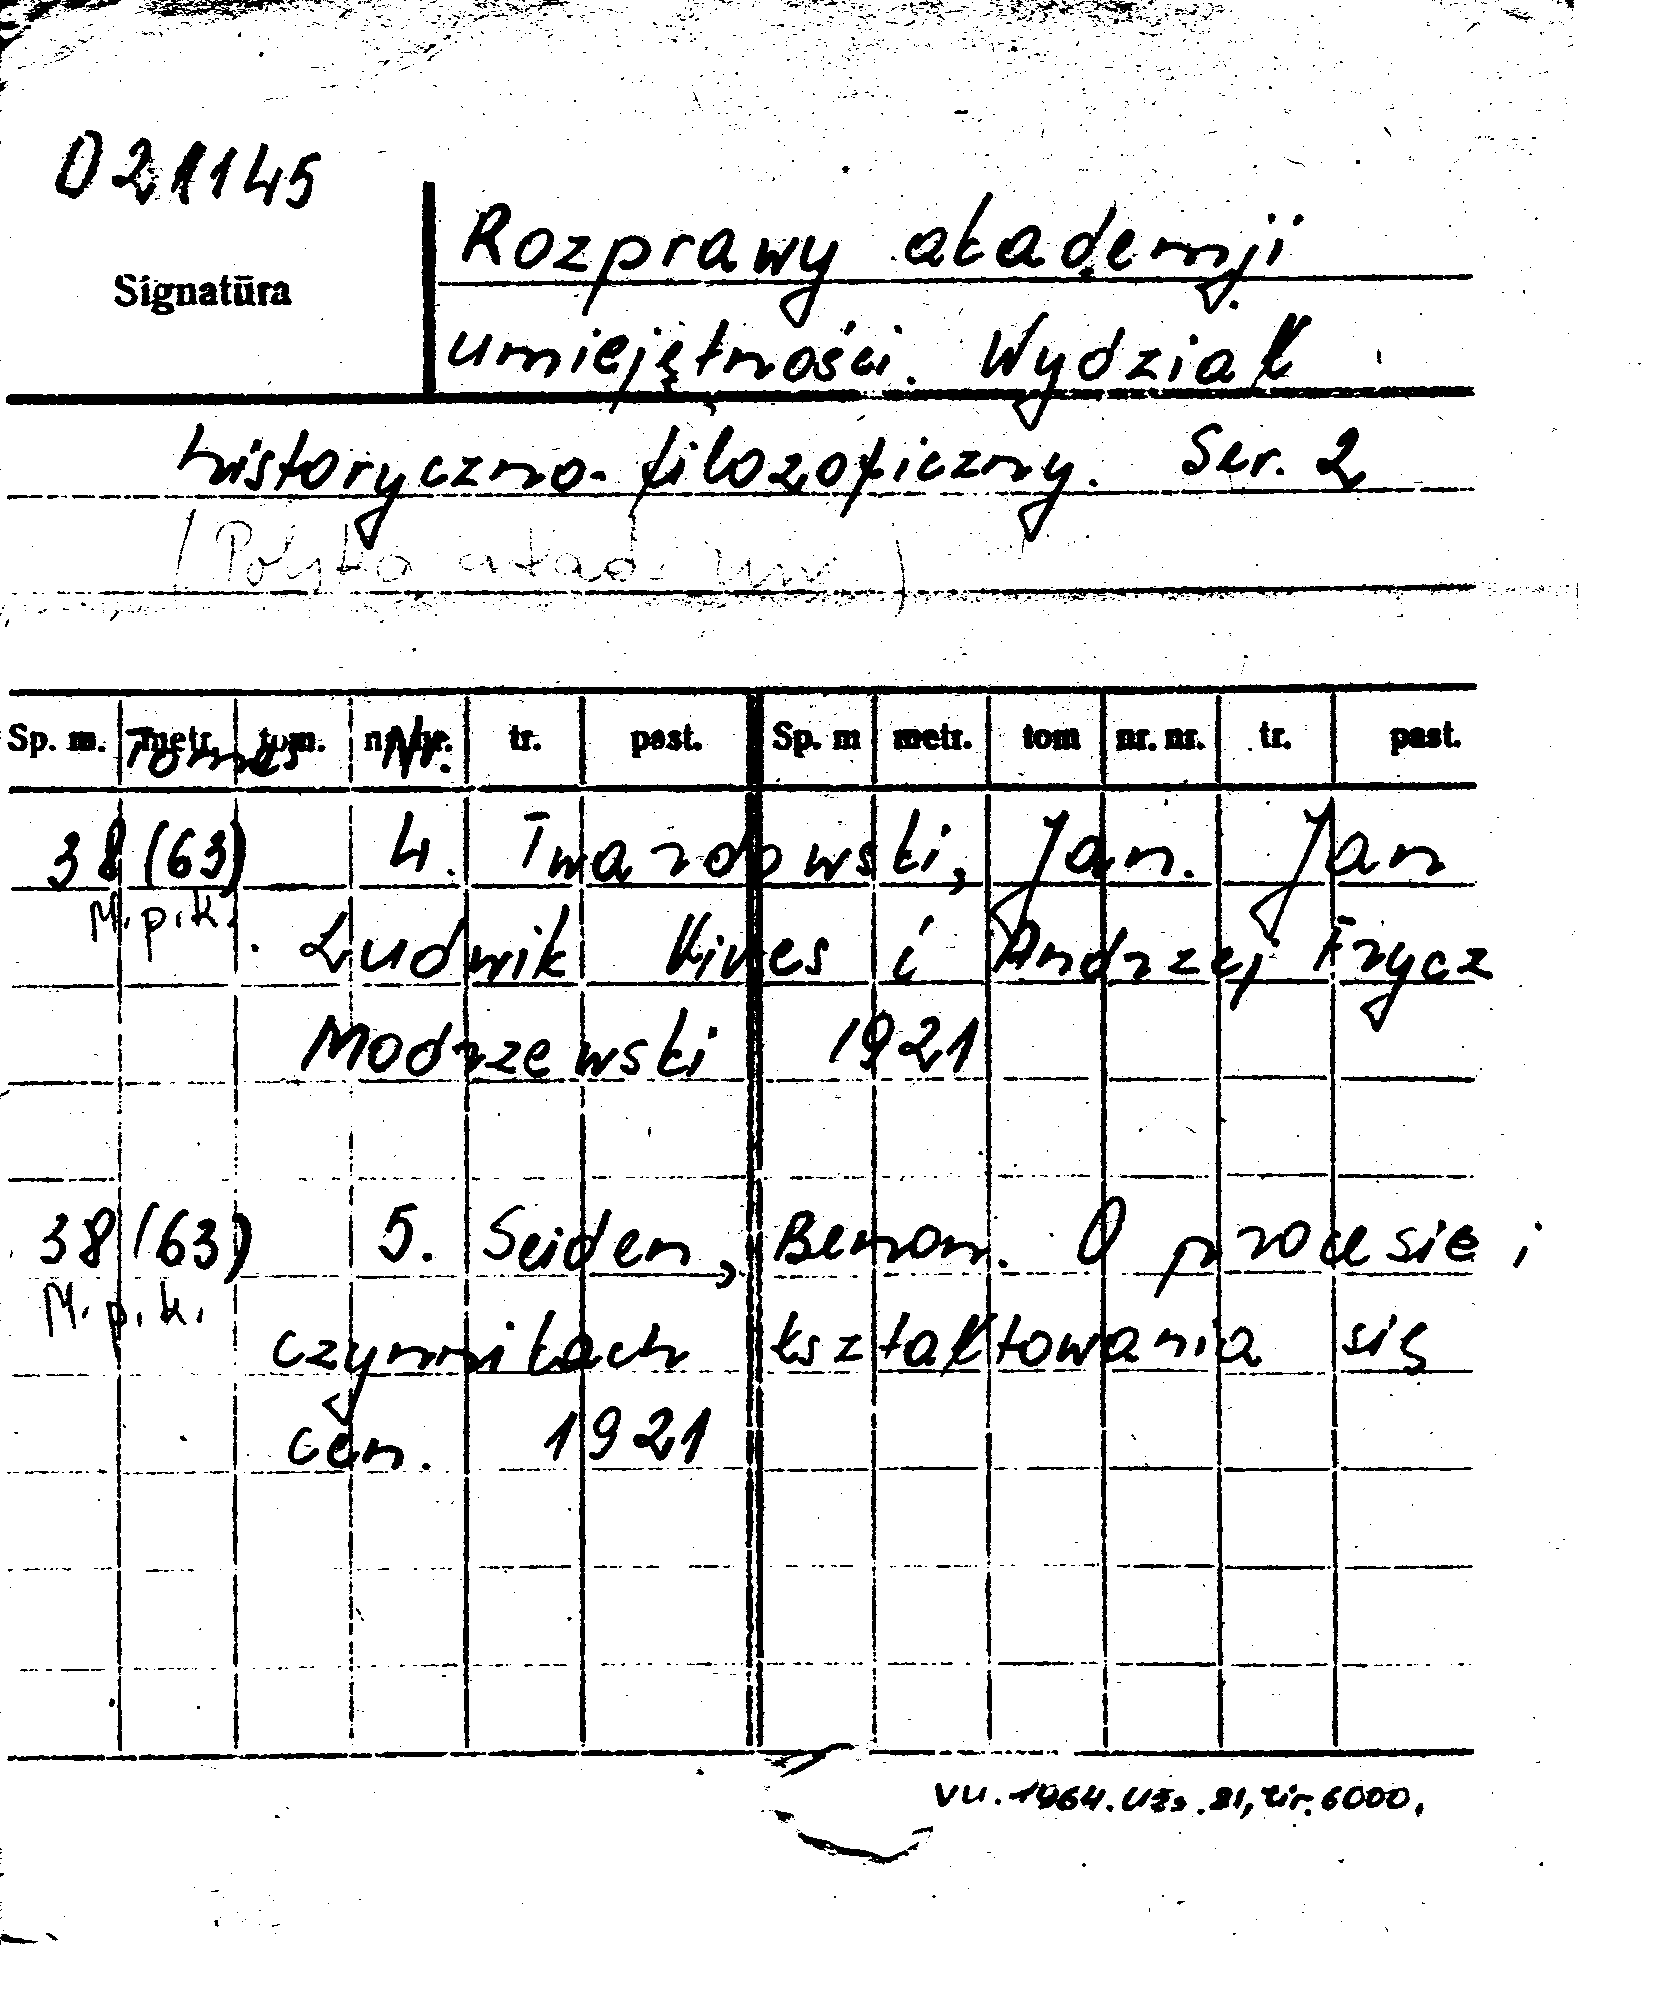 021145
Signatūra
Rozprawy akademji
umiejętności. Wydział
historyczno-filozoficzny. Ser. 2
(Polska akad. um)
Sp. m. metr. tom. nr. nr. tr. past. Sp. m metr. tom nr. nr. tr. past.
Tomas Nr.
38 (63) 4. Twardowski, Jan. Jan
M.p.k. Ludwik Vives i Andrzej Frycz
Modrzewski 1921
38 (63) 5. Seiden, Benon. O procesie i
M.p.k.
czynnikach kształtowania się
cen. 1921
VU. 1964. Užs. 81, tir. 6000.